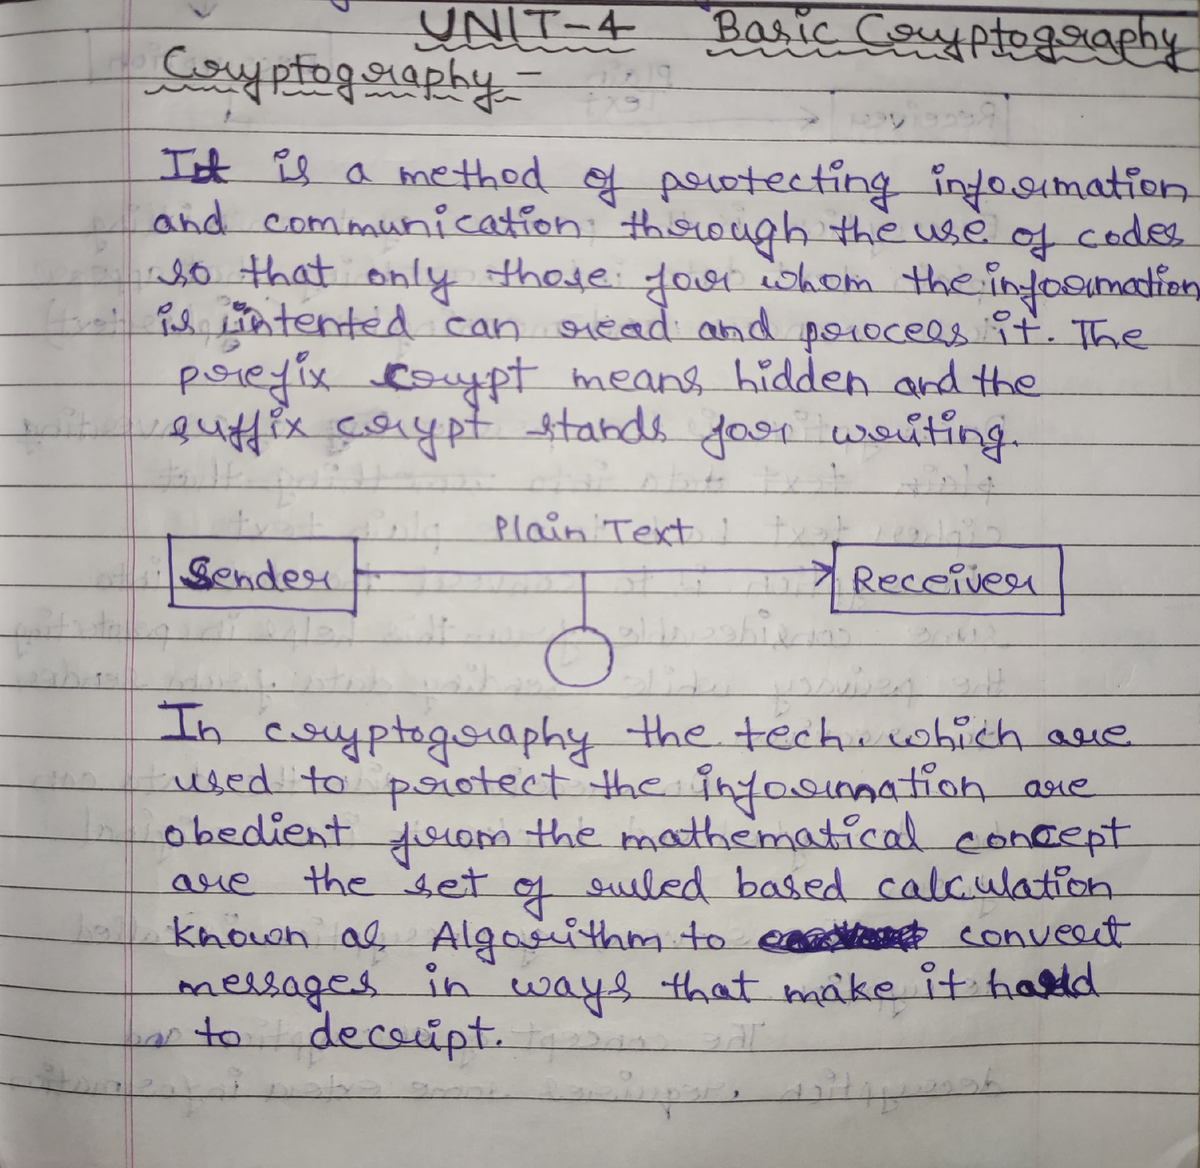 UNIT-4 Basic Cryptography
Cryptography -
It is a method of protecting information
and communication through the use of codes
so that only those for whom the information
is intented can read and process it. The
prefix crypt means hidden and the
suffix crypt stands for writing.
Plain Text
Sender
Receiver
In cryptography the tech. which are
used to protect the information are
obedient from the mathematical concept
are the set of ruled based calculation
known as Algorithm to convert
messages in ways that make it hard
to decript.